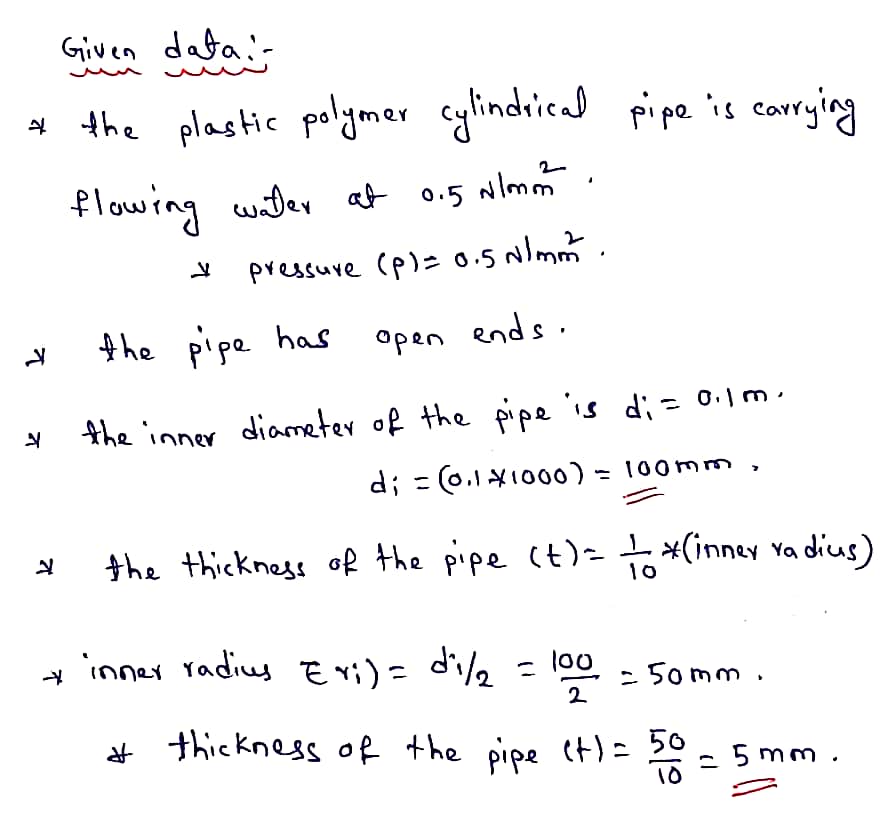 Given data:-
* the plastic polymer cylindrical pipe is carrying
flowing water at 0.5 N/mm².
* pressure (p) = 0.5 N/mm².
* the pipe has open ends.
* the inner diameter of the pipe is di = 0.1m.
di = (0.1*1000) = 100mm,
* the thickness of the pipe (t) = 1/10 *(inner radius)
* inner radius (ri) = di/2 = 100/2 = 50mm.
* thickness of the pipe (t) = 50/10 = 5mm.